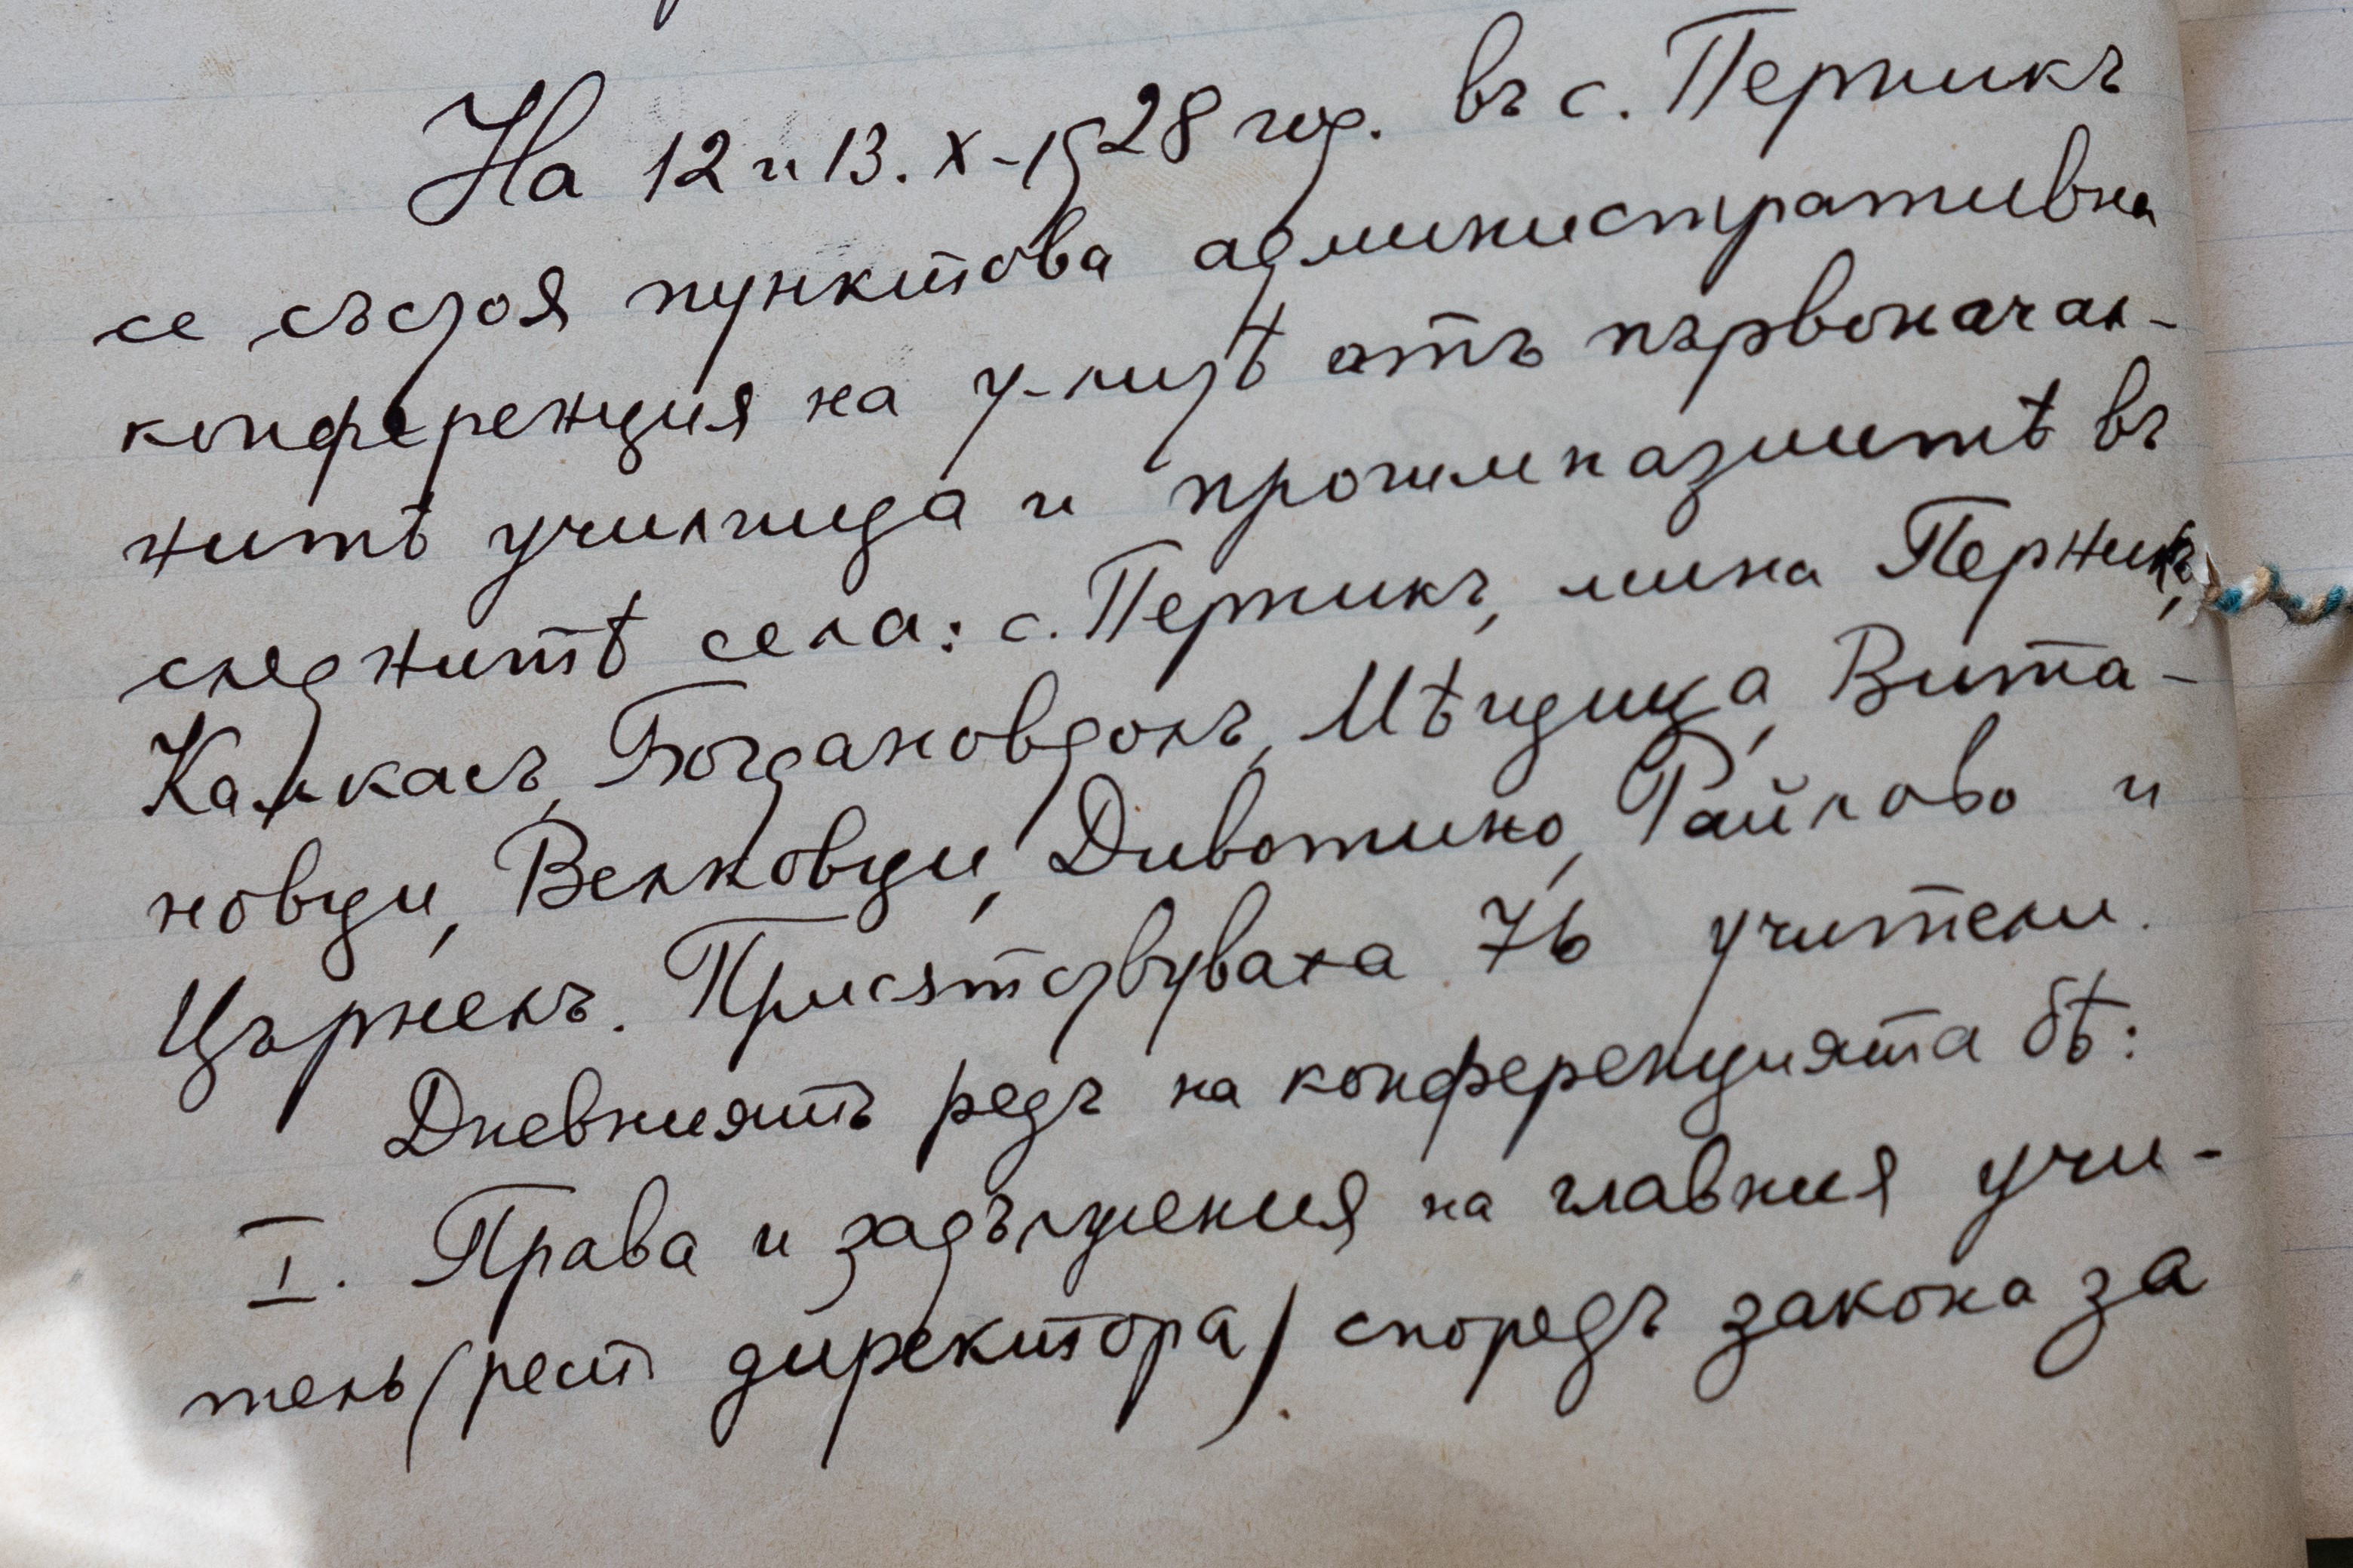 На 12 и 13. X - 1928 год. въ с. Перникъ
се състоя пунктова административна
конференция на у-литѣ отъ първоначал-
нитѣ училища и прогимназиитѣ въ
следнитѣ села: с. Перникъ, мина Перникъ,
Калкасъ, Богдановдолъ, Мѣщица, Вита-
новци, Велковци, Дивотино, Райлово и
Църнелъ. Присѫтствуваха 76 учители.
Дневниятъ редъ на конференцията бѣ:
I. Права и задължения на главния учи-
тель (респ директора) споредъ закона за